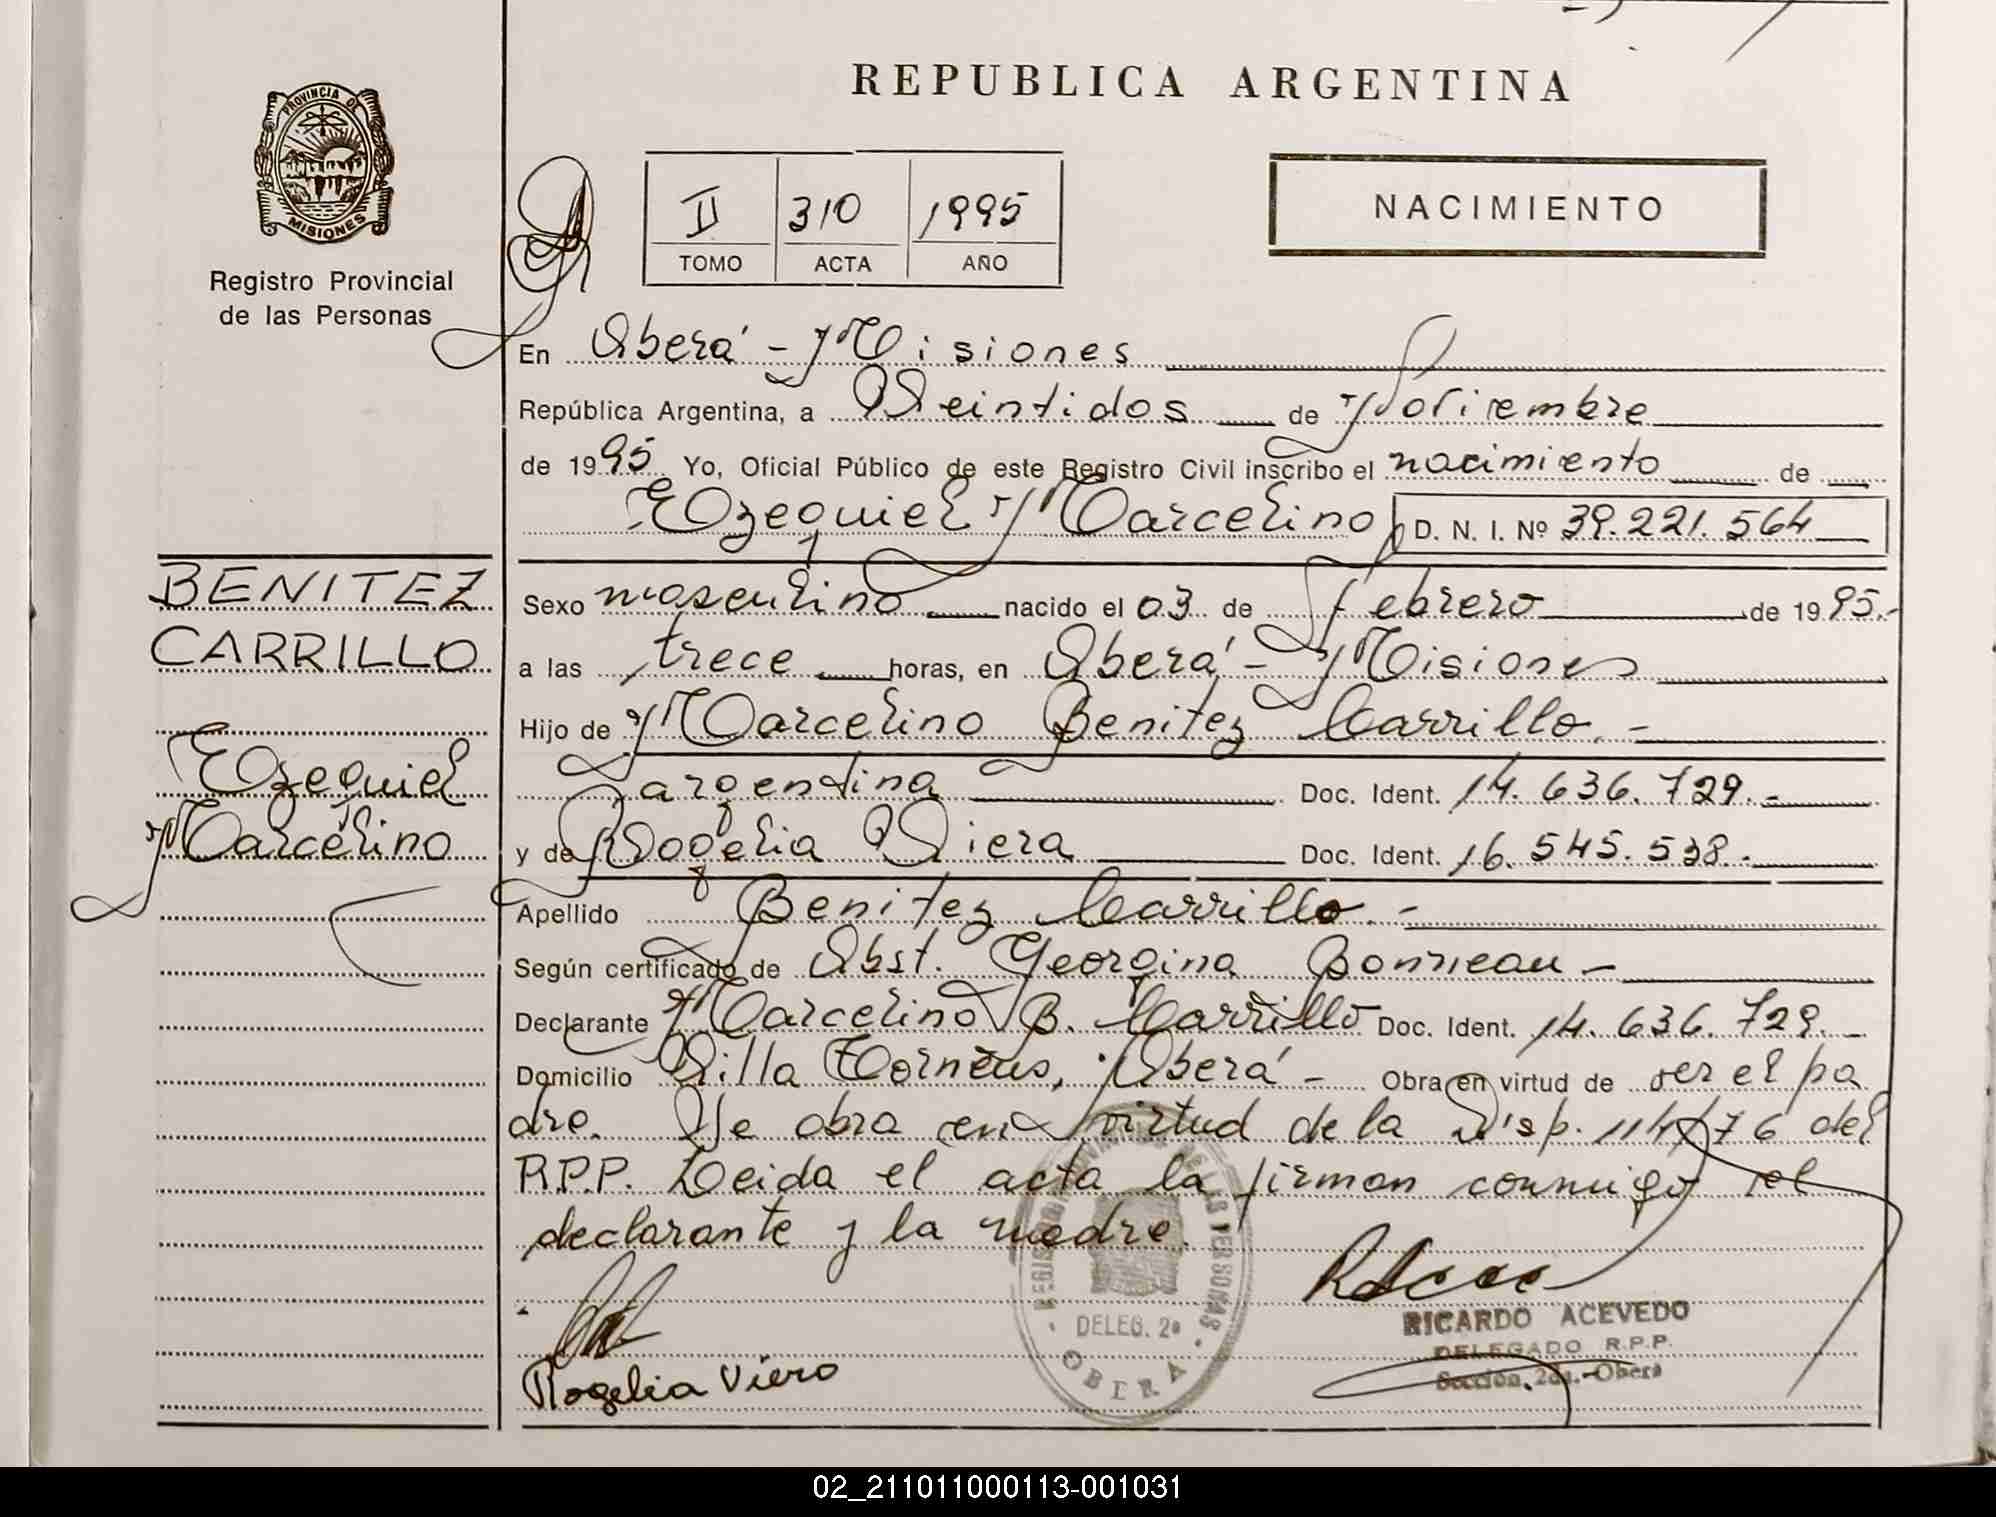 REPUBLICA ARGENTINA
PROVINCIA DE
MISIONES
Registro Provincial
de las Personas
II 310 1995
TOMO ACTA AÑO
NACIMIENTO
En Oberá - Misiones
República Argentina, a Veintidos de Noviembre
de 1995 Yo, Oficial Público de este Registro Civil inscribo el nacimiento de
Ezequiel Marcelino D. N. I. Nº 39.221.564
BENITEZ
CARRILLO
Ezequiel
Marcelino
Sexo masculino nacido el 03 de Febrero de 1995.-
a las trece horas, en Oberá - Misiones
Hijo de Marcelino Benitez Carrillo.-
argentina Doc. Ident. 14.636.729.-
y de Rogelia Viera Doc. Ident. 16.545.538.-
Apellido Benitez Carrillo.-
Según certificado de Obst. Georgina Bonneau -
Declarante Marcelino B. Carrillo Doc. Ident. 14.636.729.-
Domicilio Villa Torneus, Oberá - Obra en virtud de ser el pa
dre. Se obra en virtud de la Disp. 114/76 del
R.P.P. Leida el acta la firman conmigo el
declarante y la madre.
REGISTRO PROVINCIAL DE LAS PERSONAS
DELEG. 2a
OBERA
RICARDO ACEVEDO
DELEGADO R.P.P.
Sección 2da.-Oberá
Rogelia Viero
02_211011000113-001031